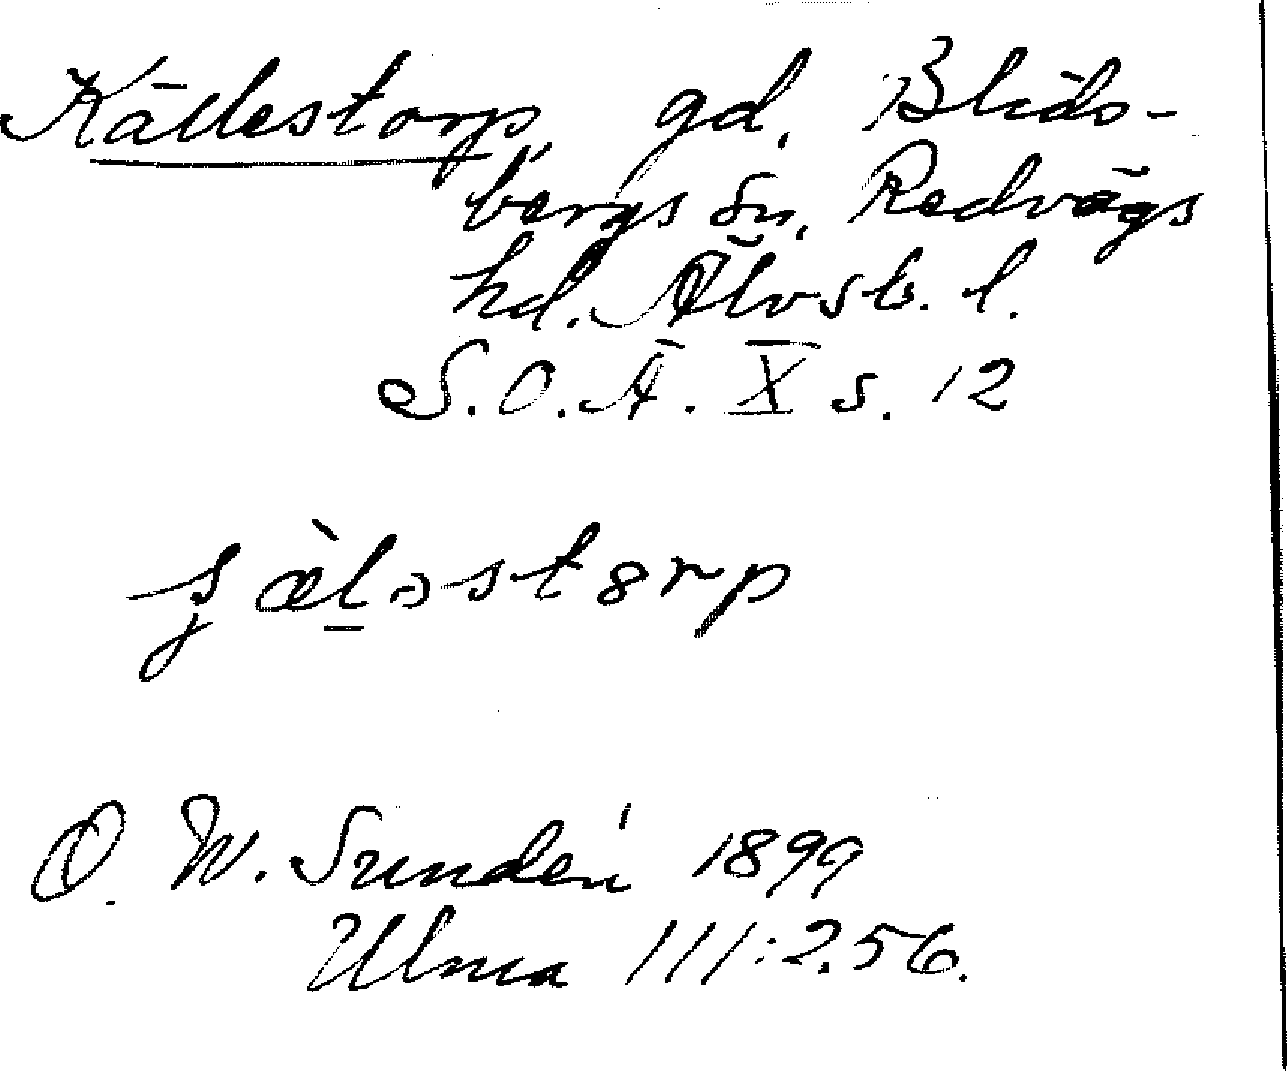 Källestorp, gd, Blids-
bergs sn, Redvägs
hd. Älvsb. l.
S.O.Ä. X s. 12
O. W. Sundén 1899
Ulma 111:2.56.